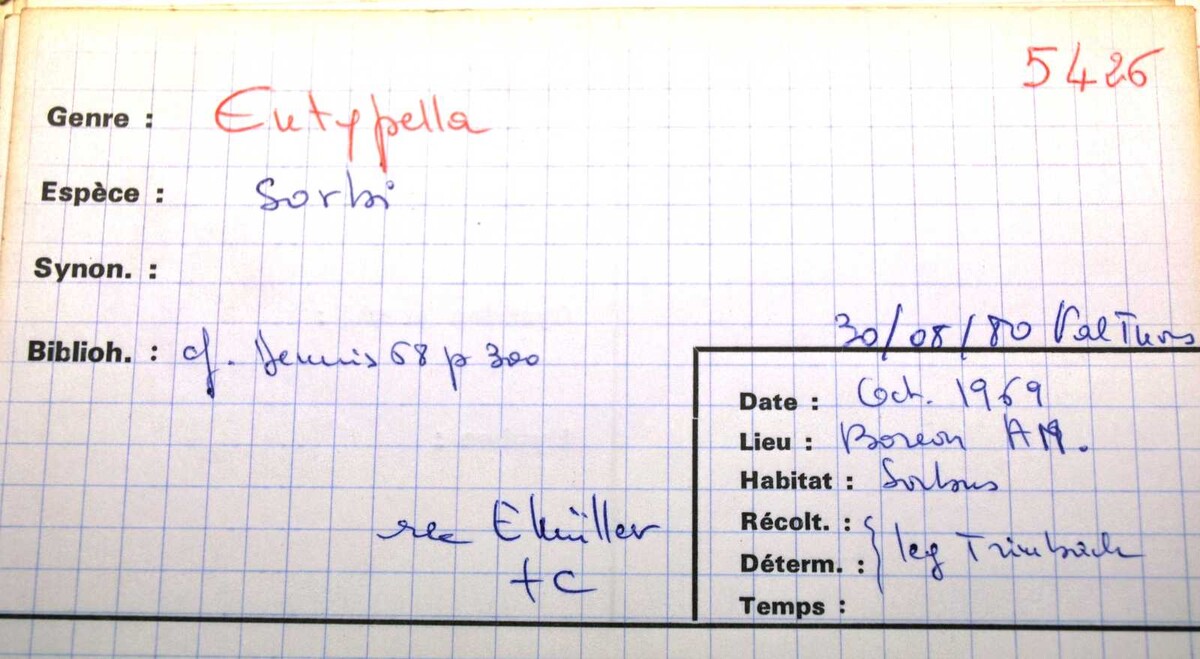 5426
Genre : Eutypella
Espèce : Sorbi
Synon. :
Biblioh. : cf. Dennis 68 p 300
30/08/80 Val Turs
Date : Oct. 1969
Lieu : Boreon AM.
Habitat : Sorbus
Récolt. :
Déterm. : leg Trimbach
Temps :
E Müller
+ C